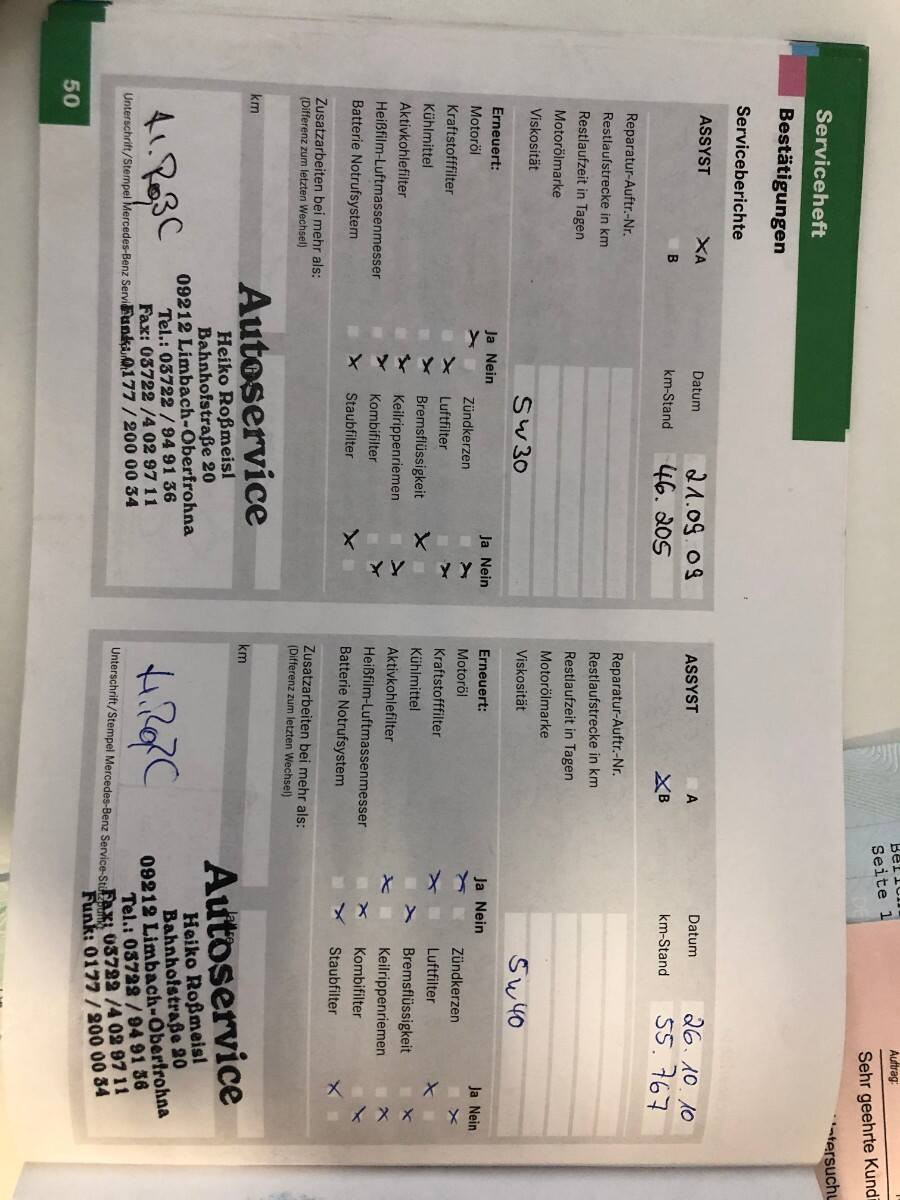 Serviceheft
Bestätigungen
Serviceberichte
ASSYST
A
B
Datum
21.09.09
km-Stand
46.205
Reparatur-Auftr.-Nr.
Restlaufstrecke in km
Restlaufzeit in Tagen
Motorölmarke
Viskosität
5W30
Erneuert:
Ja Nein
Ja Nein
Motoröl
Zündkerzen
Kraftstofffilter
Luftfilter
Kühlmittel
Bremsflüssigkeit
Aktivkohlefilter
Keilrippenriemen
Heißfilm-Luftmassenmesser
Kombifilter
Batterie Notrufsystem
Staubfilter
Zusatzarbeiten bei mehr als:
(Differenz zum letzten Wechsel)
km
Autoservice
Heiko Roßmeisl
Bahnhofstraße 20
09212 Limbach-Oberfrohna
Tel.: 03722 / 94 91 36
Fax: 03722 / 4 02 97 11
Funk: 0177 / 200 00 34
Unterschrift/Stempel Mercedes-Benz
50
ASSYST
A
B
Datum
26.10.10
km-Stand
55.767
Reparatur-Auftr.-Nr.
Restlaufstrecke in km
Restlaufzeit in Tagen
Motorölmarke
Viskosität
5W40
Erneuert:
Ja Nein
Ja Nein
Motoröl
Zündkerzen
Kraftstofffilter
Luftfilter
Kühlmittel
Bremsflüssigkeit
Aktivkohlefilter
Keilrippenriemen
Heißfilm-Luftmassenmesser
Kombifilter
Batterie Notrufsystem
Staubfilter
Zusatzarbeiten bei mehr als:
(Differenz zum letzten Wechsel)
km
Autoservice
Heiko Roßmeisl
Bahnhofstraße 20
09212 Limbach-Oberfrohna
Tel.: 03722 / 94 91 36
Fax: 03722 / 4 02 97 11
Funk: 0177 / 200 00 34
Unterschrift/Stempel Mercedes-Benz Service-Stützpunkt
Seite 1
Auftrag:
Sehr geehrte